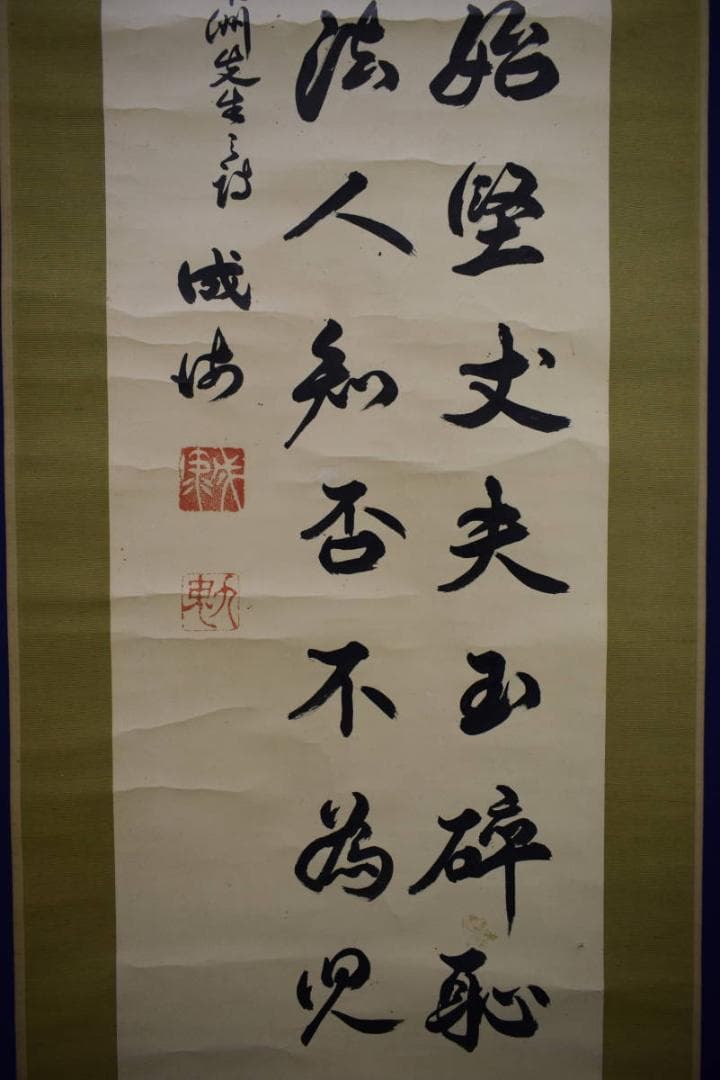 始堅丈夫玉碎恥
法人知否不為児
洲先生之詩
成